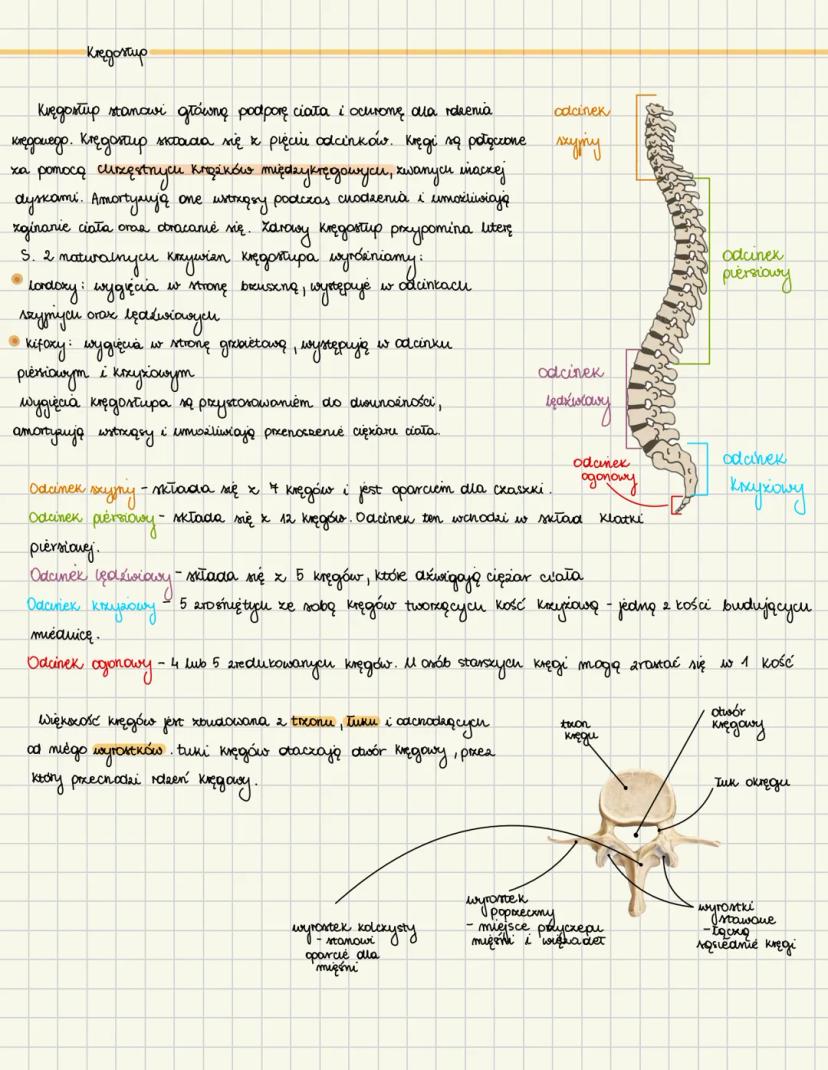 Kręgosłup
Kręgosłup stanowi główną podporę ciała i ochronę dla rdzenia
kręgowego. Kręgosłup składa się z pięciu odcinków. Kręgi są połączone
za pomocą chrzęstnych krążków międzykręgowych, zwanych inaczej
dyskami. Amortyzują one wstrząsy podczas chodzenia i umożliwiają
zginanie ciała oraz obracanie się. Zdrowy kręgosłup przypomina literę
S. Z naturalnych krzywizn kręgosłupa wyróżniamy:
lordozy: wygięcia w stronę brzuszną, występuje w odcinkach
szyjnych oraz lędźwiowych
kifozy: wygięcia w stronę grzbietową, występują w odcinku
piersiowym i krzyżowym
wygięcia kręgosłupa są przystosowaniem do dwunożności,
amortyzują wstrząsy i umożliwiają przenoszenie ciężaru ciała.
odcinek
szyjny
odcinek
piersiowy
odcinek
lędźwiowy
odcinek
ogonowy
odcinek
krzyżowy
Odcinek szyjny - składa się z 7 kręgów i jest oparciem dla czaszki.
Odcinek piersiowy - składa się z 12 kręgów. Odcinek ten wchodzi w skład klatki
piersiowej.
Odcinek lędźwiowy - składa się z 5 kręgów, które dźwigają ciężar ciała
Odcinek krzyżowy - 5 zrośniętych ze sobą kręgów tworzących kość krzyżową - jedną z kości budujących
miednicę.
Odcinek ogonowy - 4 lub 5 zredukowanych kręgów. U osób starszych kręgi mogą zrastać się w 1 kość
Większość kręgów jest zbudowana z trzonu, łuku i odchodzących
od niego wyrostków. Łuki kręgów otaczają otwór kręgowy, przez
który przechodzi rdzeń kręgowy.
trzon
kręgu
otwór
kręgowy
łuk okręgu
wyrostek kolczysty
- stanowi
oparcie dla
mięśni
wyrostek
poprzeczny
- miejsce przyczepu
mięśni i więzadeł
wyrostki
stawowe
- łączą
sąsiednie kręgi